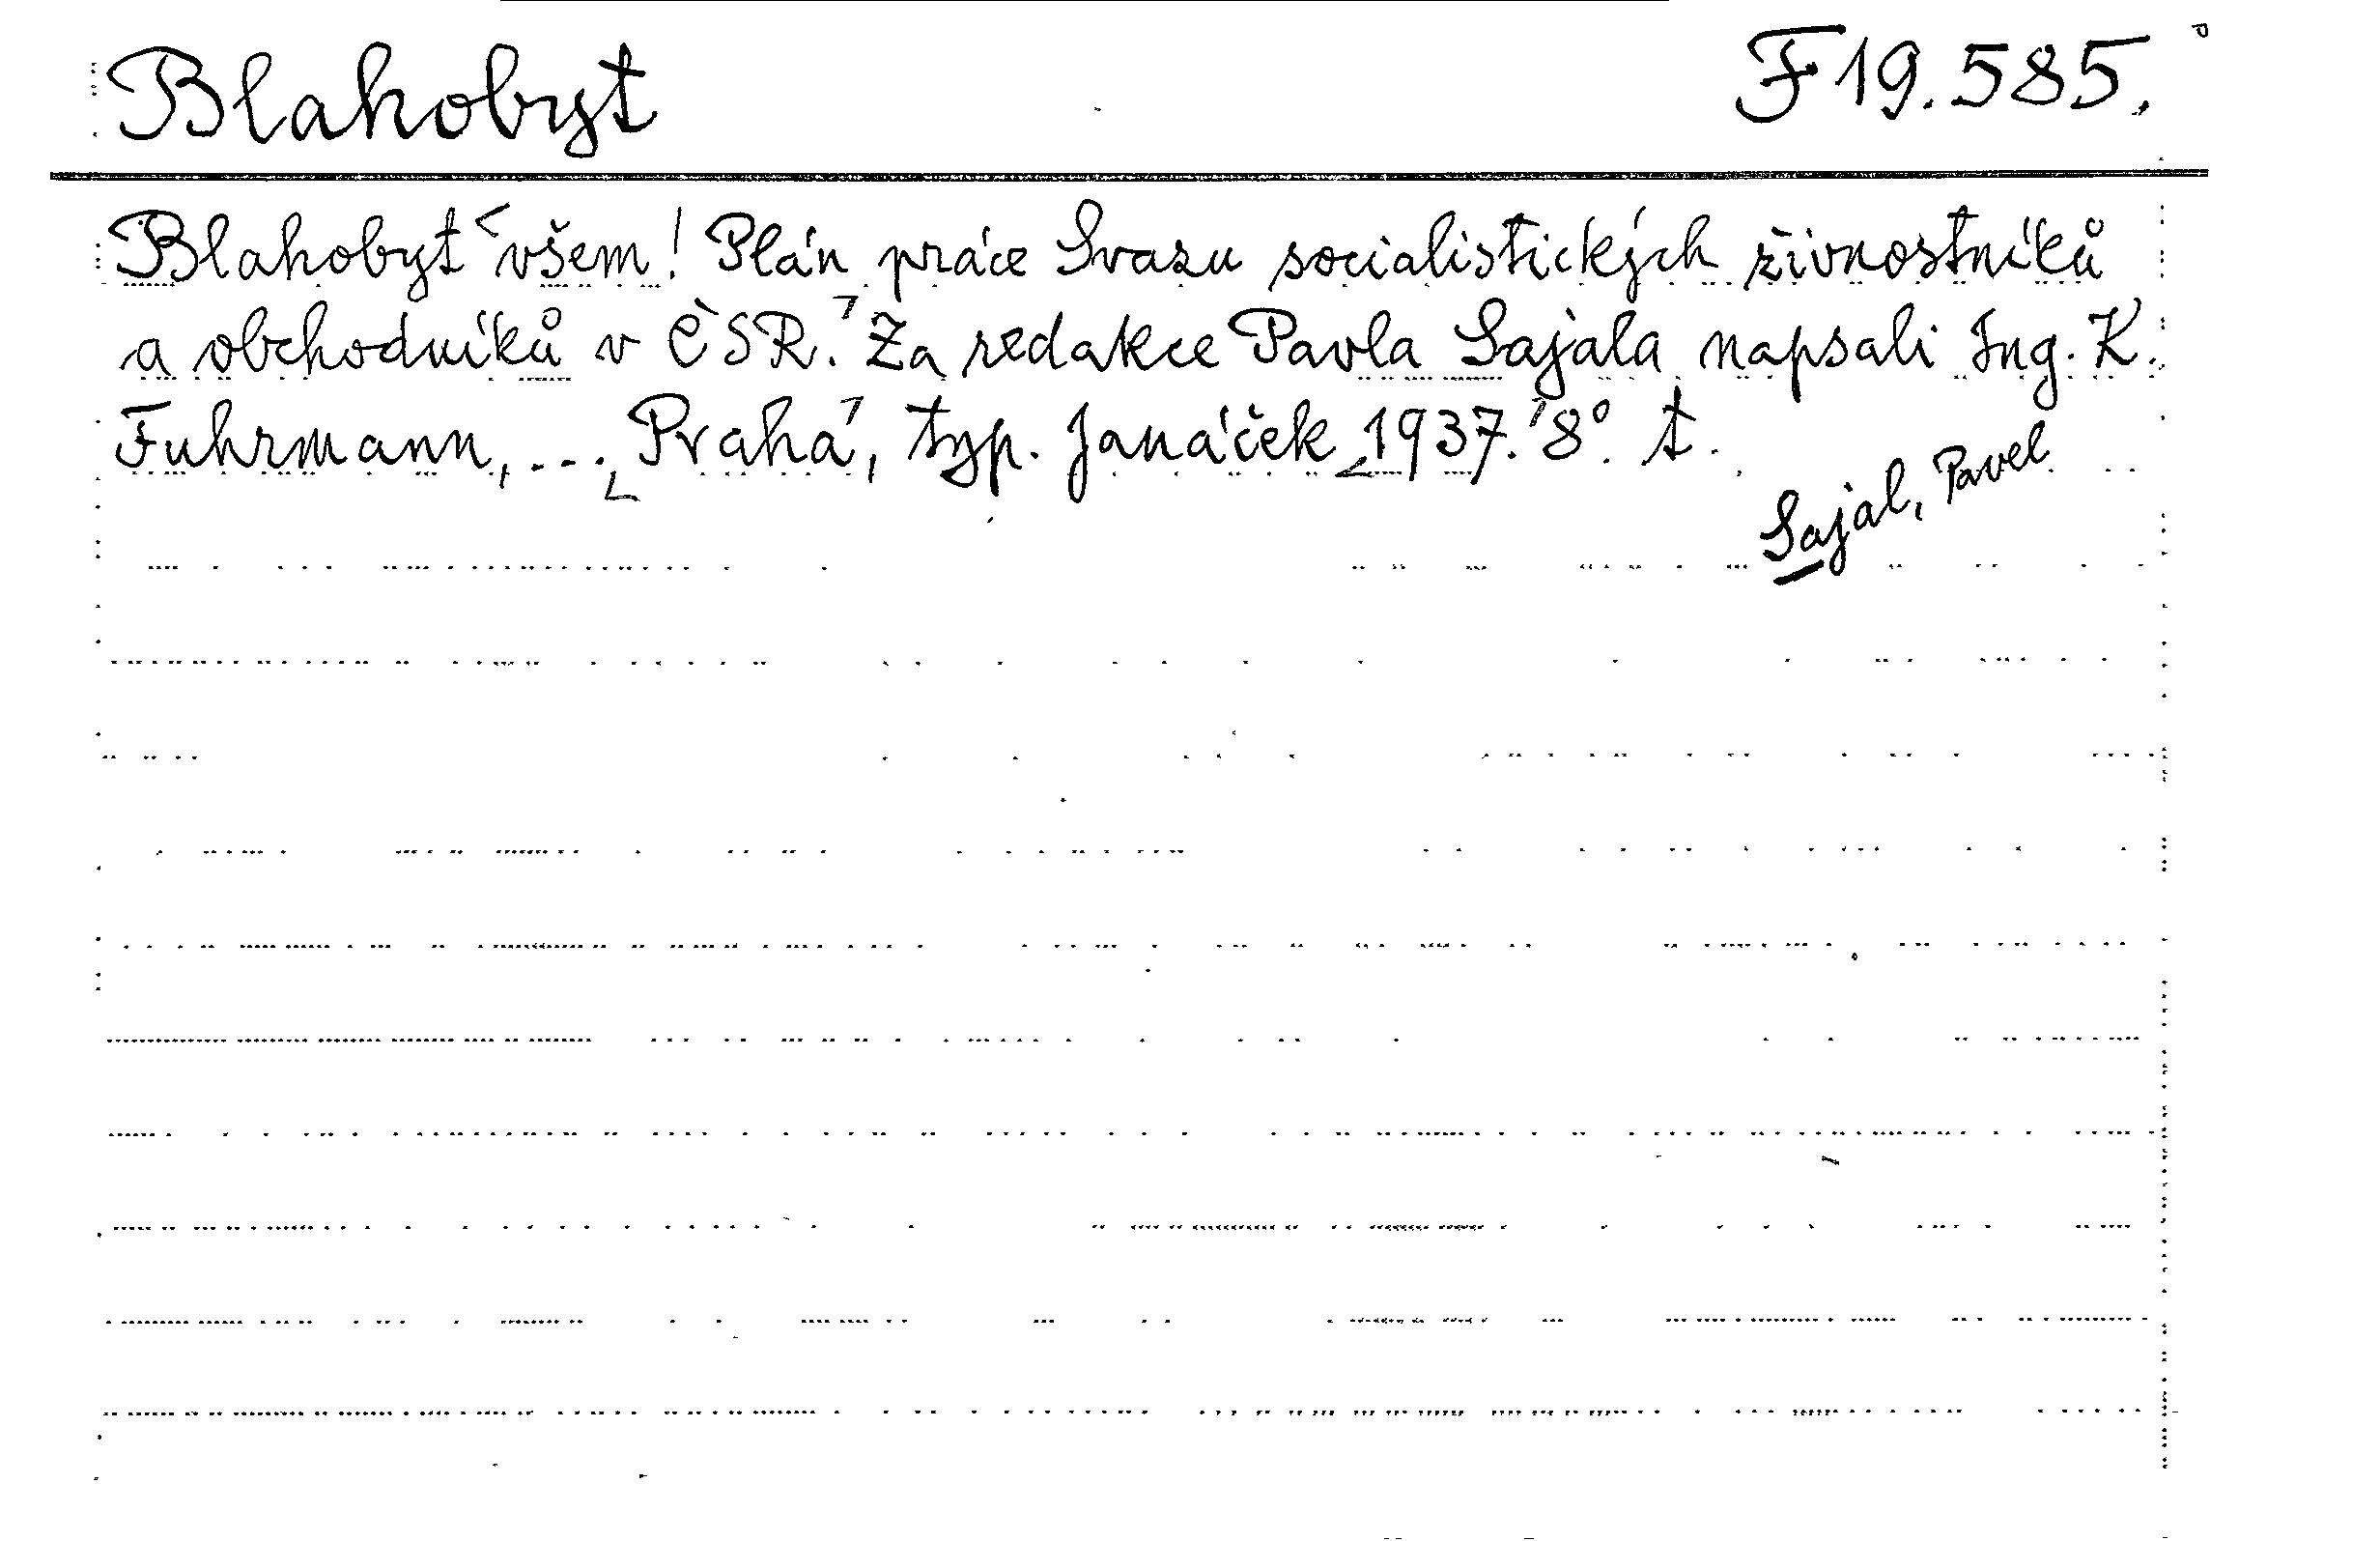 Blahobyt F 19.585.
Blahobyt všem! Plán práce Svazu socialistických živnostníků
a obchodníků v ČSR. Za redakce Pavla Sajala napsali Ing. K.
Fuhrmann, ... Praha, typ. Janáček 1937. 8°. t.
Sajal, Pavel